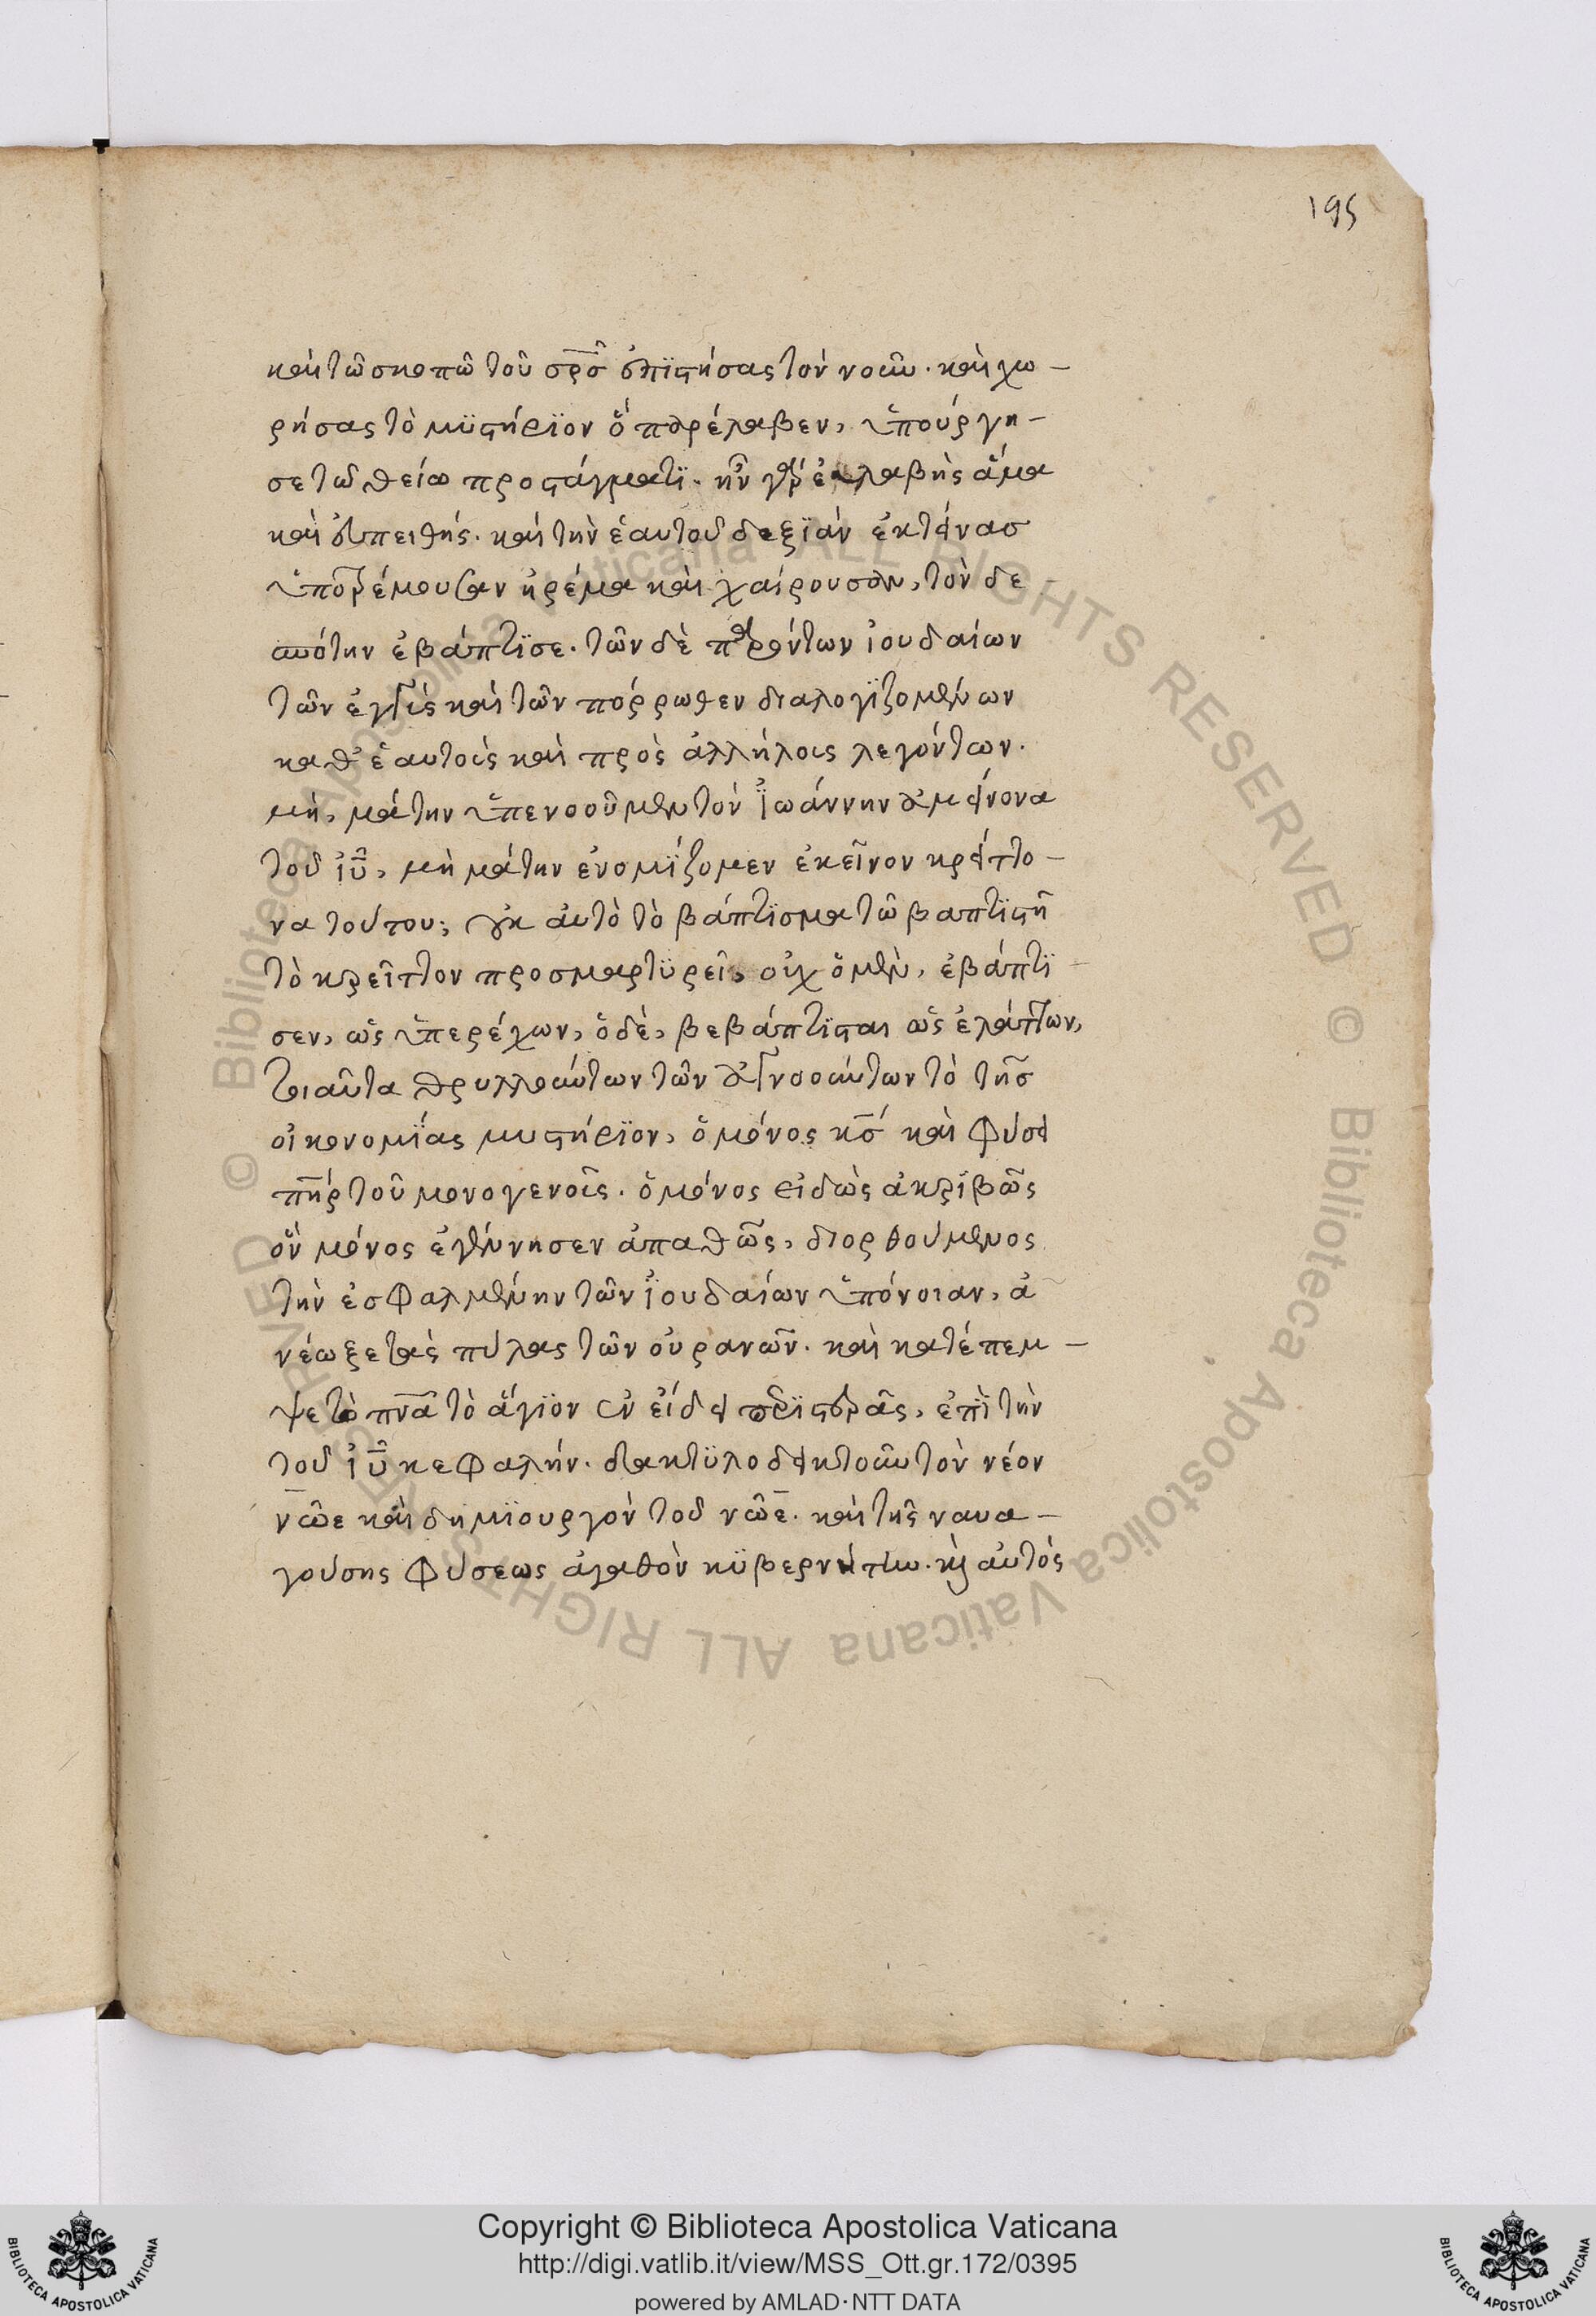 195
καὶ τῶ σκοπῶ τοῦ σρ̅σ̅ ἐπϊστήσας τὸν νοῦν. καὶ χω-
ρήσας τὸ μϋστήρϊον ὃ παρέλαβεν, ὑπούργη-
σε τῶ θείω προστάγματϊ. ἦν γὰρ εὐλαβὴς ἅμα
καὶ εὐπειθής. καὶ τὴν ἑαυτοῦ δεξϊὰν ἐκτείνασ
ὑποτρέμουσαν ἠρέμα καὶ χαίρουσαν, τὸν δε
σπότην ἐβάπτϊσε. τῶν δὲ παρόντων ἰουδαίων
τῶν ἐγγὺς καὶ τῶν πόρρωθεν διαλογϊζομένων
καθ' ἑαυτοὺς καὶ πρὸς ἀλλήλους λεγόντων.
μὴ, μάτην ὑπενοοῦμεν τὸν ἰωάννην ἀμείνονα
τοῦ ἰ̅υ̅, μὴ μάτην ἐνομϊζομεν ἐκεῖνον κρείττο-
να τούτου; οὐκ αὐτὸ τὸ βάπτϊσμα τῶ βαπτϊστῆ
τὸ κρεῖττον προσμαρτϋρεῖ, οὐχ ὁ μὲν, ἐβάπτϊ
σεν, ὡς ὑπερέχων, ὁ δὲ, βεβάπτϊσται ὡς ἐλάττων,
τοιαῦτα θρυλλούντων τῶν ἀγνοούντων τὸ τῆσ
οἰκονομϊας μυστήρϊον, ὁ μόνος κ̅σ̅ καὶ φύσει
π̅η̅ρ̅ τοῦ μονογενοῦς. ὁ μόνος εἰδὼς ἀκρϊβῶς
ὃν μόνος ἐγέννησεν ἀπαθῶς, διορθούμενος
τὴν ἐσφαλμένην τῶν ἰουδαίων ὑπόνοιαν, ἀ
νέωξε τὰς πύλας τῶν οὐρανῶν. καὶ κατέπεμ-
ψε τὸ π̅ν̅α̅ τὸ ἅγϊον ἐν εἴδει περϊστερᾶς, ἐπὶ τὴν
τοῦ ἰ̅υ̅ κεφαλήν. δακτϋλοδεικτοῦν τὸν νέον
νῶε καὶ δημϊουργὸν τοῦ νῶε. καὶ τῆς ναυα-
γούσης φύσεως ἀγαθὸν κϋβερνήτην. καὶ αὐτὸς
Copyright © Biblioteca Apostolica Vaticana
http://digi.vatlib.it/view/MSS_Ott.gr.172/0395
powered by AMLAD·NTT DATA